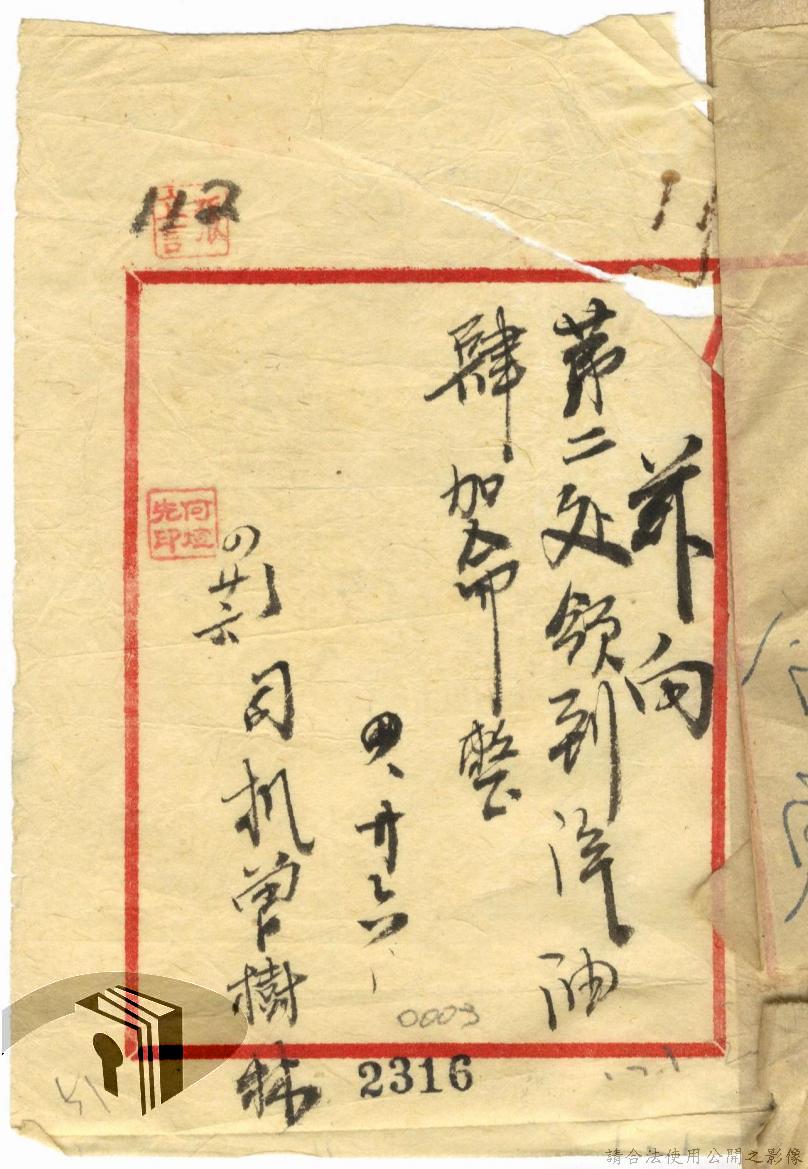 112
茲向
第二处領到汽油
肆加侖整
四、廿六
司机曾樹林
四廿六
何垣
先印
0009
2316
請合法使用公開之影像